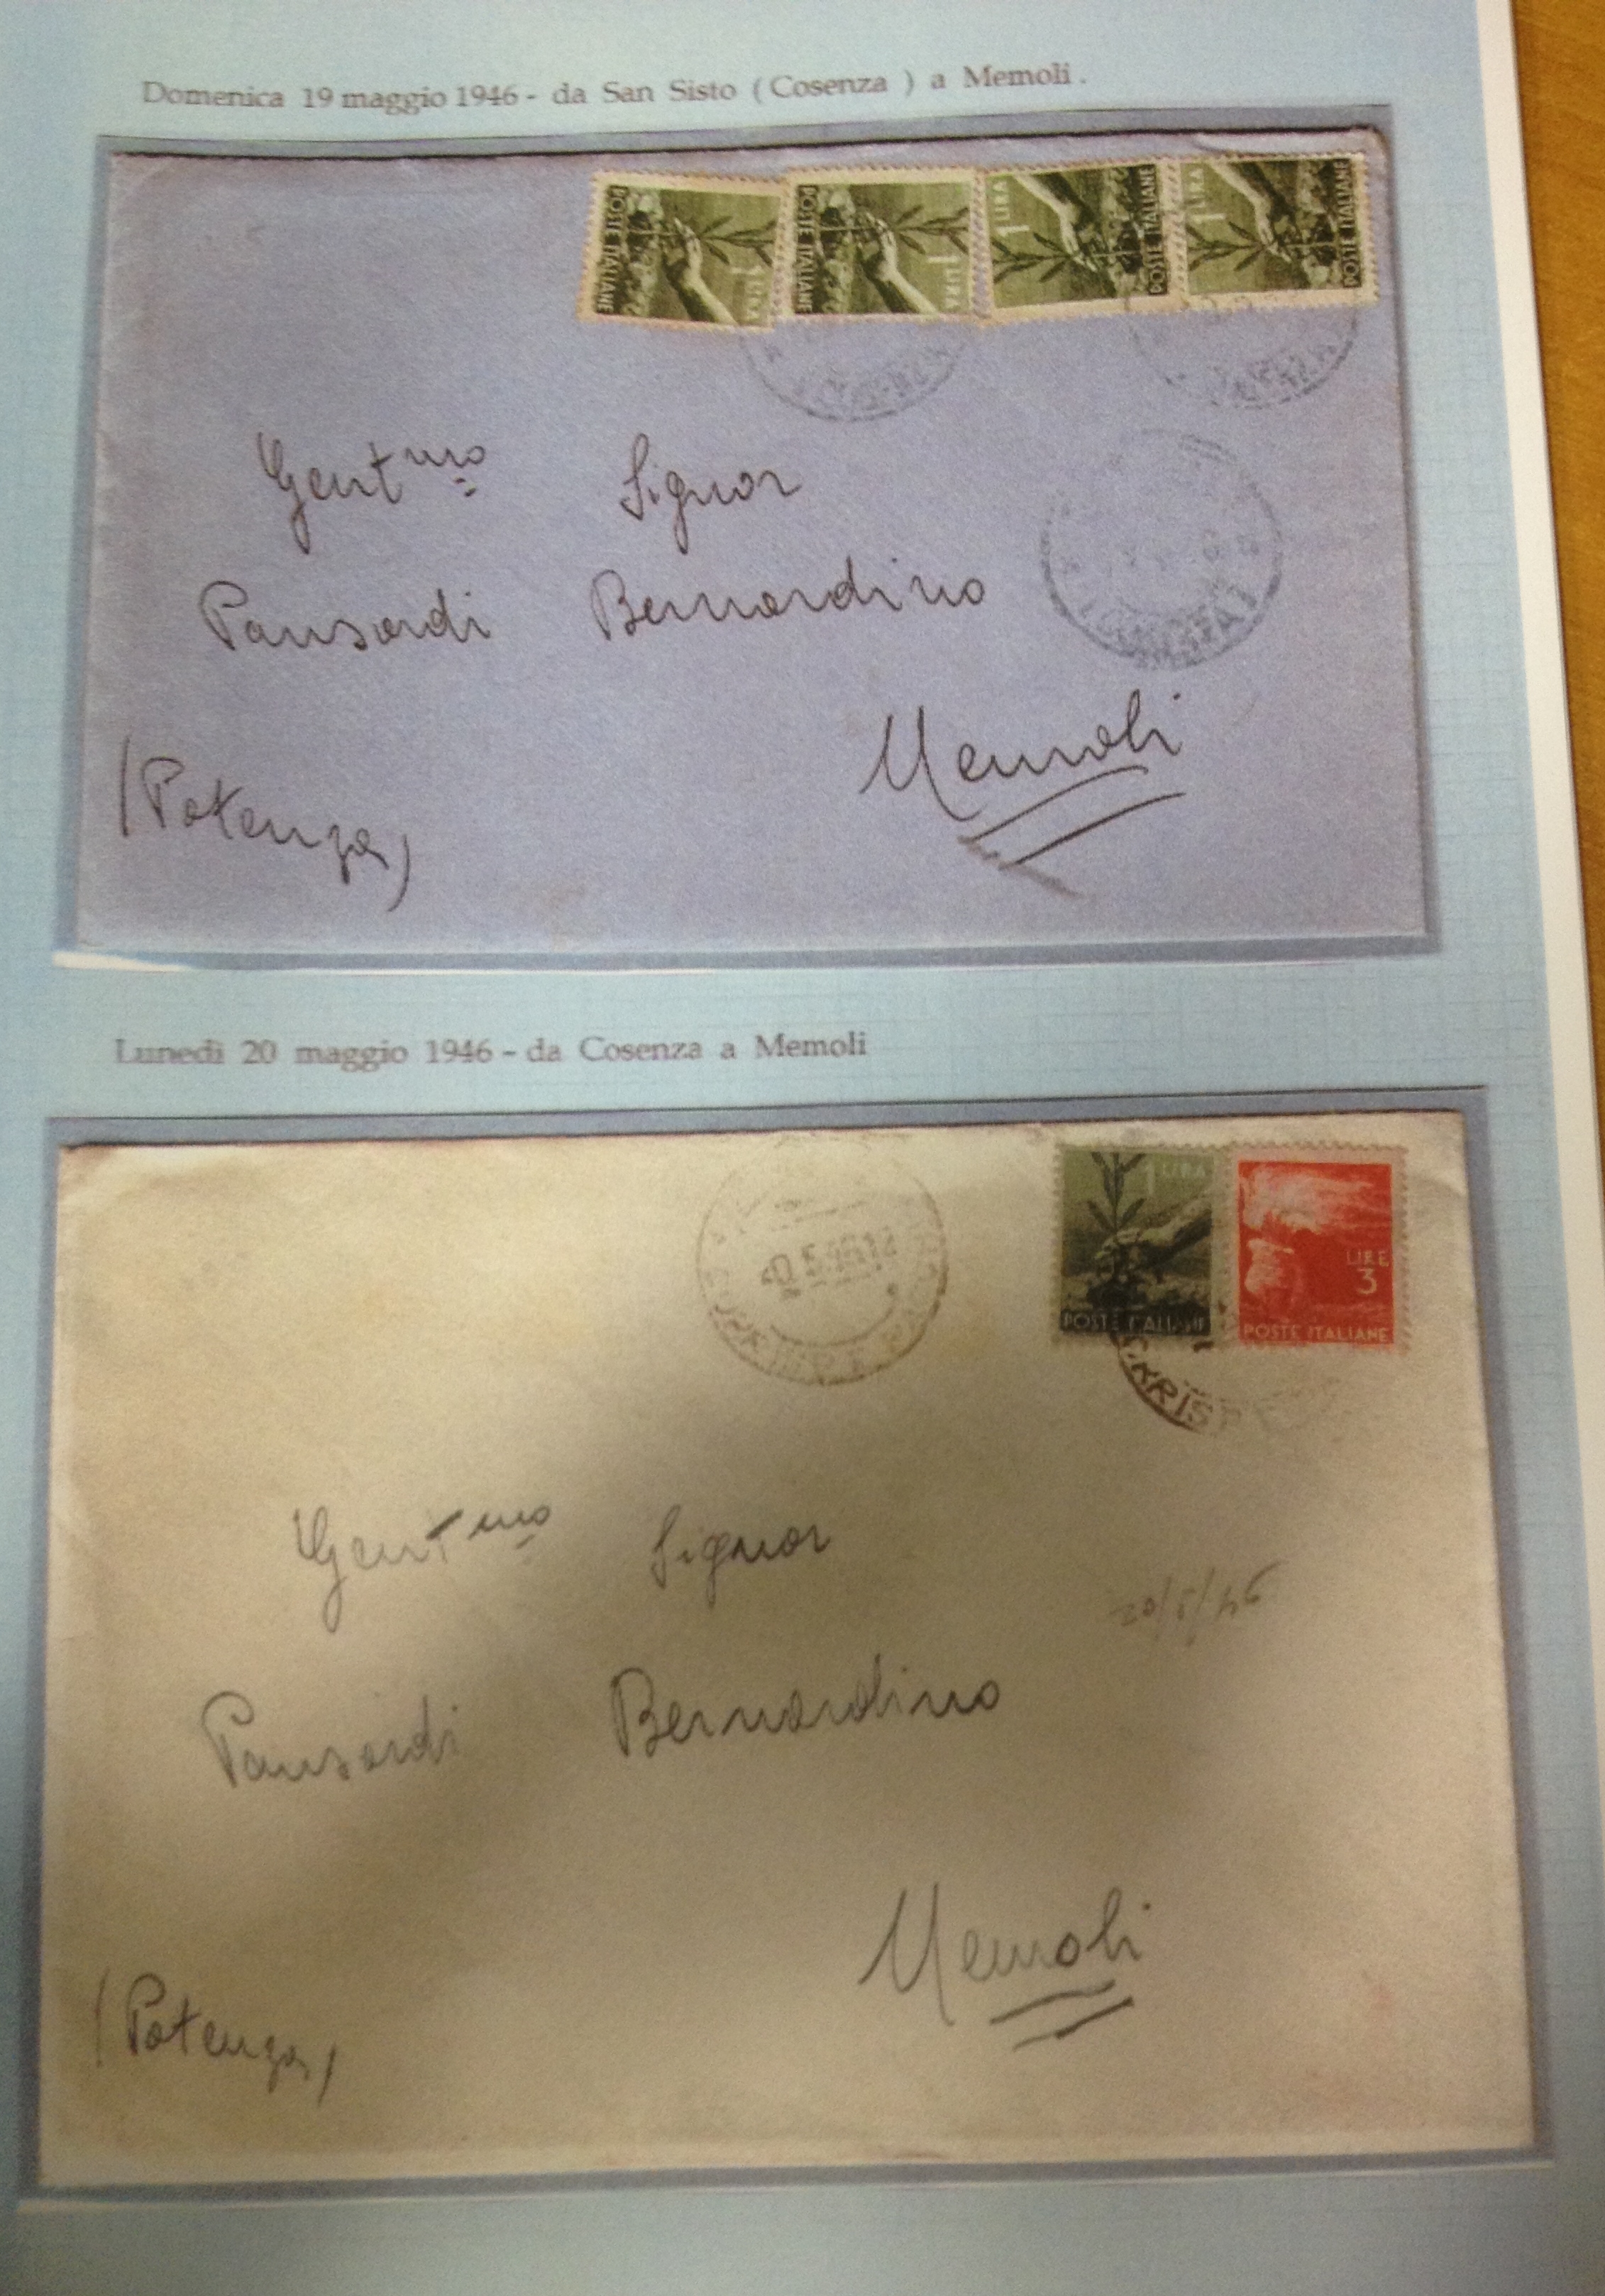 Domenica 19 maggio 1946 - da San Sisto ( Cosenza ) a Memoli .
POSTE ITALIANE
1 LIRA
POSTE ITALIANE
1 LIRA
1 LIRA
POSTE ITALIANE
1 LIRA
POSTE ITALIANE
COSENZA
Gent mo Signor
Pansardi Bernardino
Memoli
(Potenza)
Lunedì 20 maggio 1946 - da Cosenza a Memoli
1 LIRA
POSTE ITALIANE
LIRE
3
POSTE ITALIANE
Gent mo Signor
20/5/46
Pansardi Bernardino
Memoli
(Potenza)